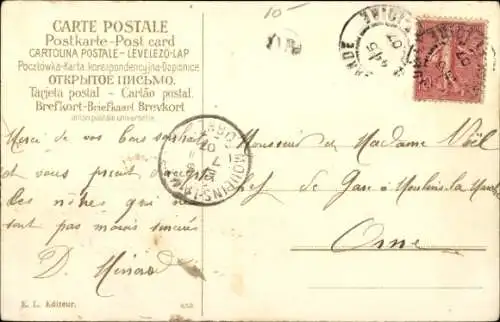 10-
CARTE POSTALE
Postkarte - Post card
CARTOLINA POSTALE - LEVELEZŐ-LAP
Pocztówka - Karta korespondencyjna - Dopisnice
ОТКРЫТОЕ ПИСЬМО.
Tarjeta postal - Cartão postal.
Brefkort - Briefkaart Brevkort
union postale universelle.
Merci de vos bons souhaits
et vous prient d'accepter
les nôtres qui ne
sont pas moins sincères
D. Minard
Monsieur et Madame Noël
Chef de Gare à Moulins-la-Marche
Orne
MOULINS-LA-M
ORNE
07
E. L. Editeur.